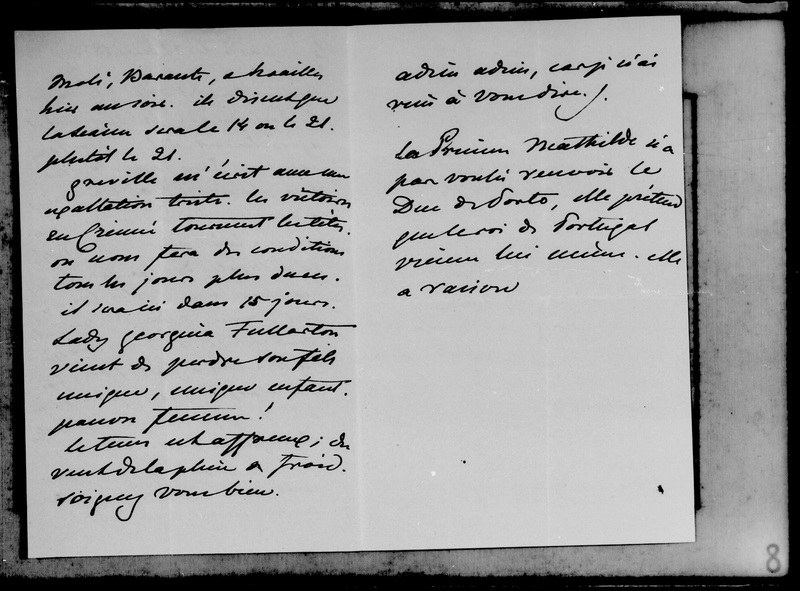 Molé, Barante, Noailles
hier au soir. ils disent que
la séance sera le 14 ou le 21.
plutôt le 21.
greville m'écrit avec une
exaltation triste. les victoires
en Crimée tournent les têtes.
on nous fera des conditions
tous les jours plus dures.
il sera ici dans 15 jours.
Lady georgina Fullerton
vient de perdre son fils
unique, unique enfant.
pauvre femme!
le tems est affreux; du
vent de la pluie & froid.
soignez vous bien.
adieu adieu, car je n'ai
rien à vous dire.
La Princesse Mathilde n'a
pas voulu recevoir le
Duc de Porto, elle prétend
que le roi de Portugal
vienne lui même. elle
a raison
8